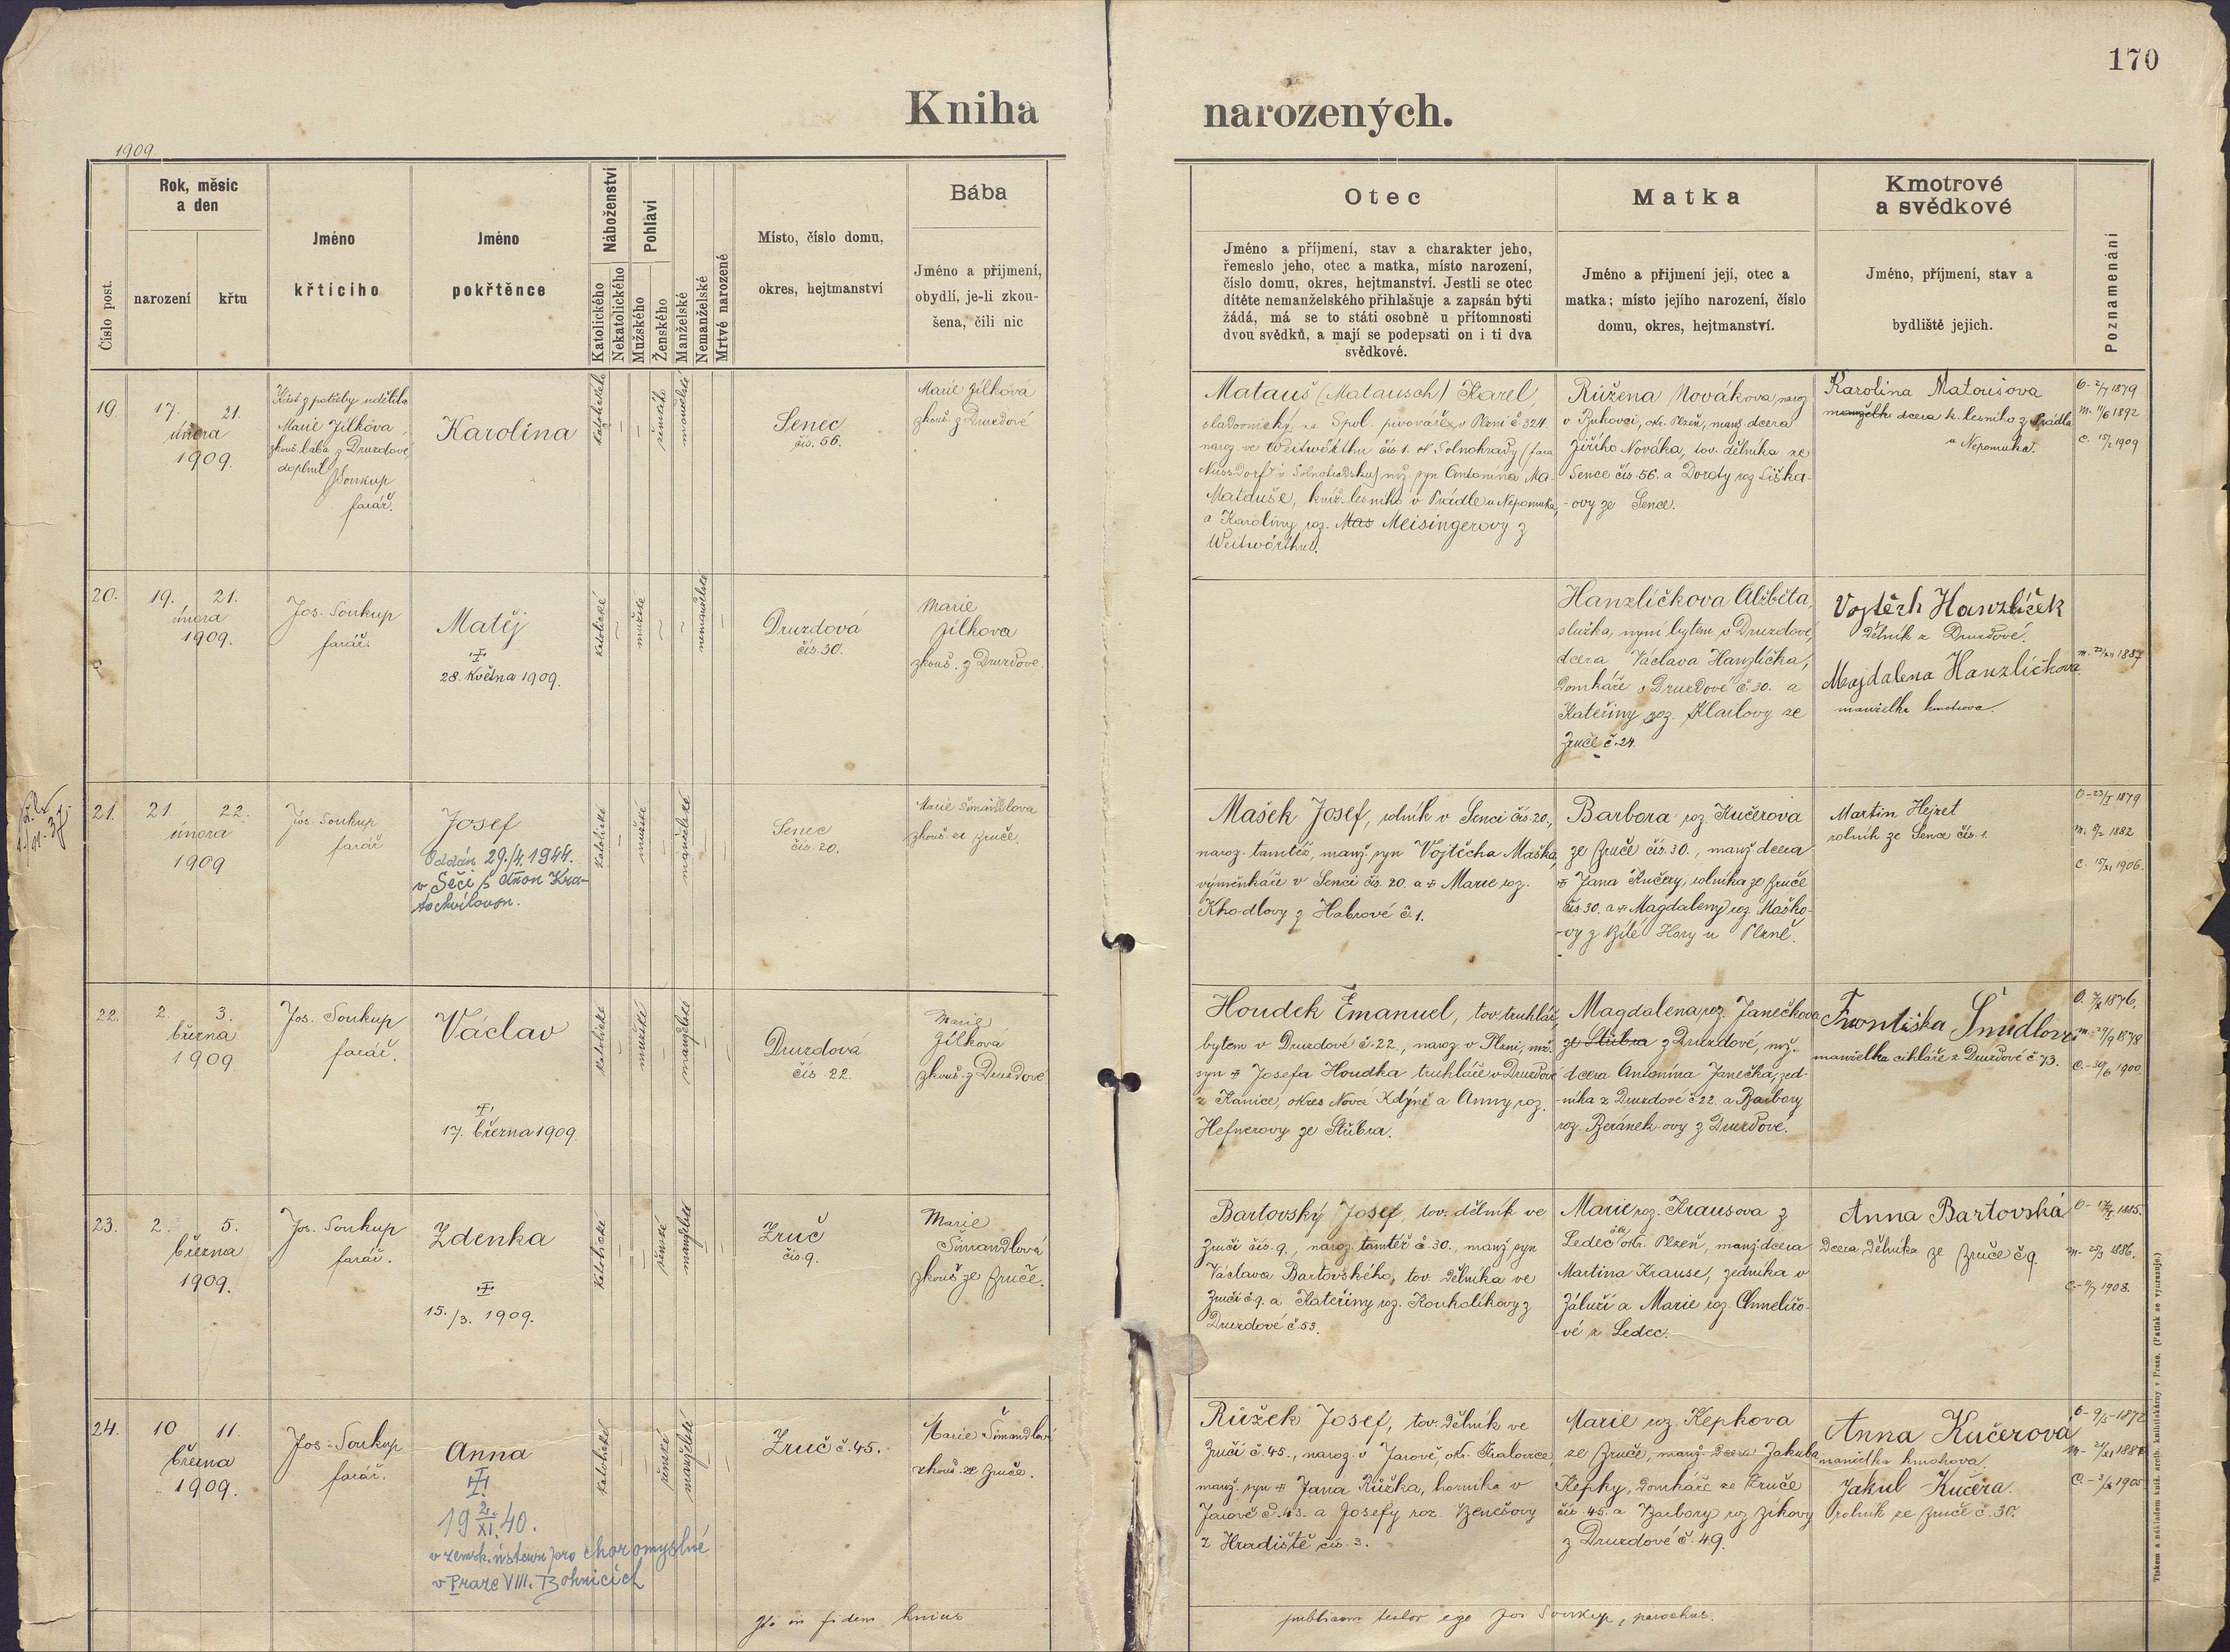 170
Kniha narozených.
1909.
Číslo post.
Rok, měsíc
a den
narození
křtu
Jméno
křtícího
Jméno
pokřtěnce
Náboženství
Katolického
Nekatolického
Pohlaví
Mužského
Ženského
Manželské
Nemanželské
Mrtvě narozené
Místo, číslo domu,
okres, hejtmanství
Bába
Jméno a přijmení,
obydlí, je-li zkou-
šena, čili nic
Otec
Jméno a příjmení, stav a charakter jeho,
řemeslo jeho, otec a matka, místo narození,
číslo domu, okres, hejtmanství. Jestli se otec
dítěte nemanželského přihlašuje a zapsán býti
žádá, má se to státi osobně u přítomnosti
dvou svědků, a mají se podepsati on i ti dva
svědkové.
Matka
Jméno a přijmení její, otec a
matka; místo jejího narození, číslo
domu, okres, hejtmanství.
Kmotrové
a svědkové
Jméno, příjmení, stav a
bydliště jejich.
Poznamenání
19.
17. 21.
února
1909.
Křest z potřeby udělila
Marie Jílková
zkouš. bába z Druzdové,
doplnil J Soukup
farář.
Karolina
katolického
ženského
manželské
Senec
čís. 56.
Marie Jílková
zkouš. z Druzdové
Matauš (Matausch) Karel,
sladovnický na Spol. pivováře v Plzni č. 324.
naroz. ve Weitwörthu čís 1. v Solnohrady (fara
Nussdorf v Solnohradsku) mž. syn Antonína Ma-
Matouše, kníž. lesního v Prádle u Nepomuka,
a Karoliny roz. Mas Meisingerovy z
Weitwörthu.
Růžena Nováková, naroz
v Bukovci, okr. Plzeň, manž. dcera
Jiřího Nováka, tov. dělníka ze
Sence čís. 56. a Doroty roz Liška-
-ovy ze Sence.
Karolina Matoušova
manželk dcera k. lesního z Prádla
u Nepomuka.
O- 2/7 1879
m. 11/6 1892
C. 15/2 1909
20.
19. 21.
února
1909.
Jos. Soukup
farář.
Matěj
28. Května 1909.
katolické
mužské
nemanželské
Druzdová
čís. 30.
Marie
Jílkova
zkouš. z Druzdové
Hanzlíčkova Alžběta,
služka, nyní bytem v Druzdové,
dcera Václava Hanzlíčka,
Domkáře v Druzdové č. 30. a
Kateřiny roz. Klailovy ze
Zruče č. 24.
Vojtěch Hanzlíček
Dělník z Druzdové.
Magdalena Hanzlíčkova
manželka kmotrova.
21.
21. 22.
února
1909
Jos. Soukup
farář
Josef
Oddán 29./4. 1944.
v Seči s Annou Kra-
tochvílovou.
katolické
mužské
manželské
Senec
čís. 20.
Marie Šimandlova
zkouš. ze Zruče.
Mašek Josef, rolník v Senci čís. 20.,
naroz. tamtéž, manž. syn Vojtěcha Maška,
výměnkáře v Senci čís. 20. a Marie roz.
Khodlovy z Habrové č. 1.
Barbora roz Kučerova
ze Zruče čís. 30., manž. dcera
Jana Kučery, rolníka ze Zruče
čís 30. a Magdaleny roz. Maško-
-vy z Bílé Hory u Plzně.
Martin Hejret
rolník ze Sence čís. 1.
O-23/I 1879
C. 15/XI 1906.
22.
2. 3.
března
1909.
Jos. Soukup
farář.
Václav
17. března 1909.
katolické
mužské
manželské
Druzdova
čís 22.
Marie
Jílková
zkouš. z Druzdové
Houdek Emanuel, tov. truhlář,
bytem v Druzdové č. 22., naroz. v Plzni, mž.
syn Josefa Houdka truhláře v Druzdové
z Kanice, okres Nová Kdýně a Anny roz.
Hefnerovy ze Stübra.
Magdalena roz. Janečkova
ze Stübra z Druzdové, mž.
dcera Antonína Janečka, zed-
-níka z Druzdové č 22. a Barbory
roz. Beránek-ovy z Druzdové.
Františka Šmidlova
manželka cihláře z Druzdové č. 73.
m.-29/9 1878
C.-30/6 1900.
23.
2. 5.
března
1909.
Jos. Soukup
farář.
Zdenka
15./3. 1909.
katolické
ženské
manželské
Zruč
čís. 9.
Marie
Šimandlová
zkouš ze Zruče.
Bartovský Josef, tov. dělník ve
Zruči čís. 9., naroz. tamtéž č. 30., manž. syn
Václava Bartovského, tov. dělníka ve
Zruči č 9. a Kateřiny roz. Kouholíkovy z
Druzdové č. 53.
Marie roz. Krausova z
Ledec okr. Plzeň, manž. dcera
Martina Krause, zedníka v
Záluží a Marie roz. Chmelířo-
-vé z Ledec.
Anna Bartovská
Dcera dělníka ze Zruče č 9.
24.
10 11.
března
1909.
Jos. Soukup
farář.
Anna
19 2./XI. 40.
v zemsk. ústavu pro choromyslné
v Praze VIII. Bohnicích
katolické
ženské
manželské
Zruč č. 45.
Marie Šimandlová
zkouš. ze Zruče.
Růžek Josef, tov. dělník ve
Zruči č. 45., naroz. v Jarově, okr. Kralovice,
manž. syn Jana Růžka, horníka v
Jarově č. 43. a Josefy roz. Benešovy
z Hradiště čís. 3.
Marie roz. Kepkova
ze Zruče, manž. Dcera Jakuba
Kepky, Domkáře ze Zruče
čís. 45. a Barbory roz Zíkovy
z Druzdové č. 49.
Anna Kučerová
manželka kmotrova.
Jakub Kučera
rolník ze Zruče č. 30.
O- 9/5-1872
in fidem hujus
publicam testor ego Jos Soukup, parochus.
Tiskem a nákladem kníž. arcib. knihtiskárny v Praze. (Patisk se vyhrazuje.)